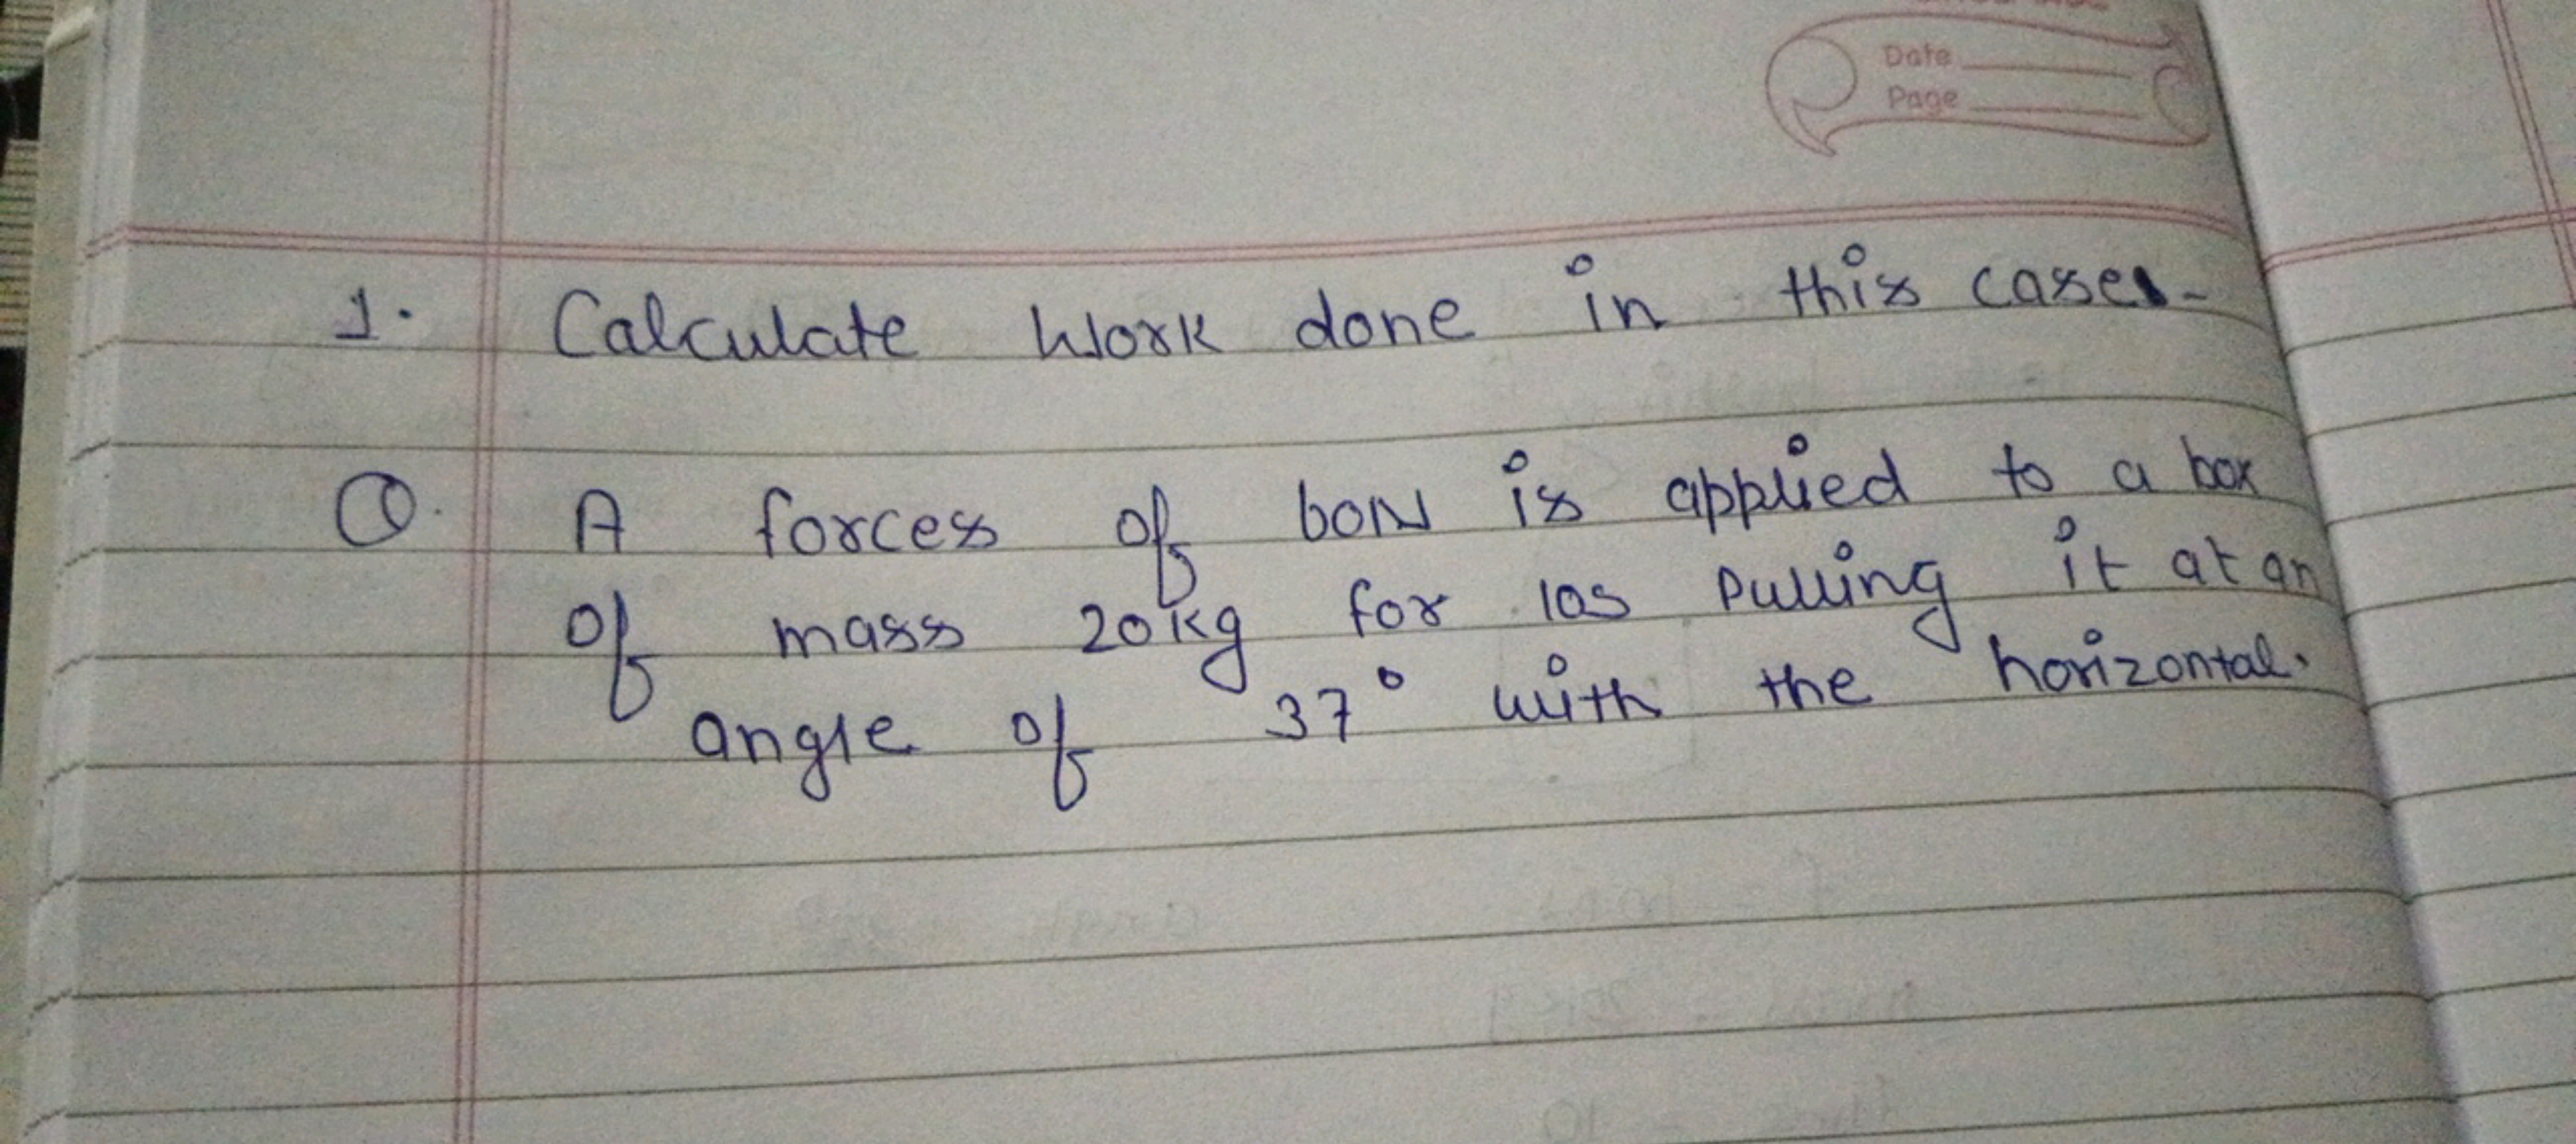 Date
Page
1. Calculate Work done in this cases-
Q. A forces of 60N is applied to a box
of mass 20kg for 10s pulling it at an
angle of 37° with the horizontal.